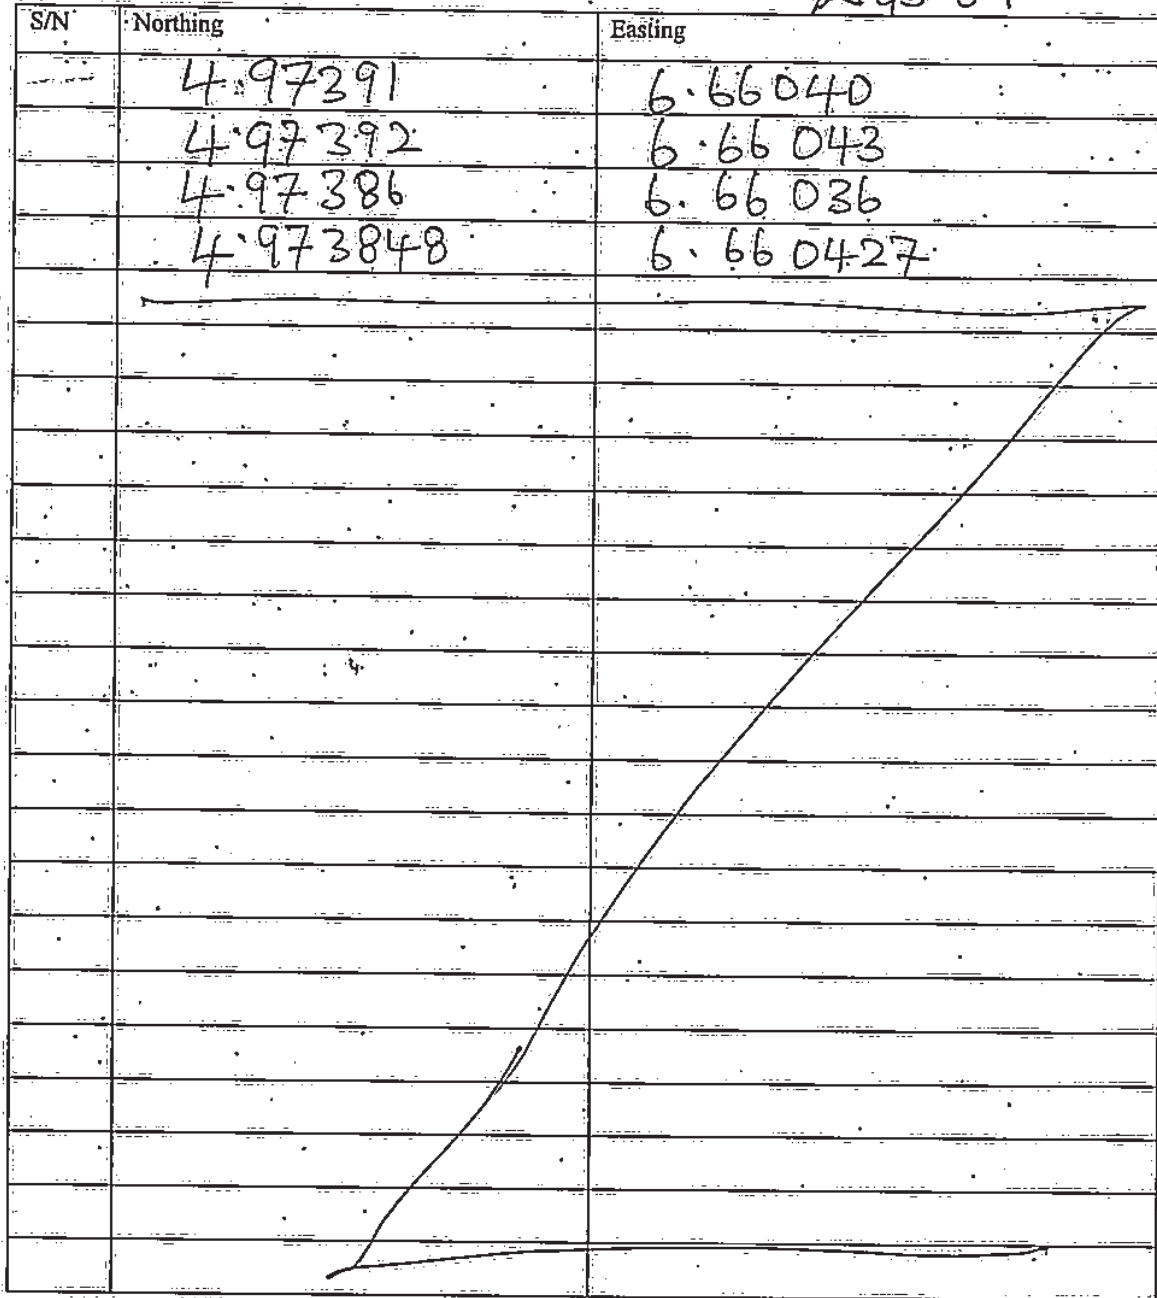 S/N Northing Easting
4.97391 6.66040
4.97392 6.66043
4.97386 6.66036
4.973848 6.660427